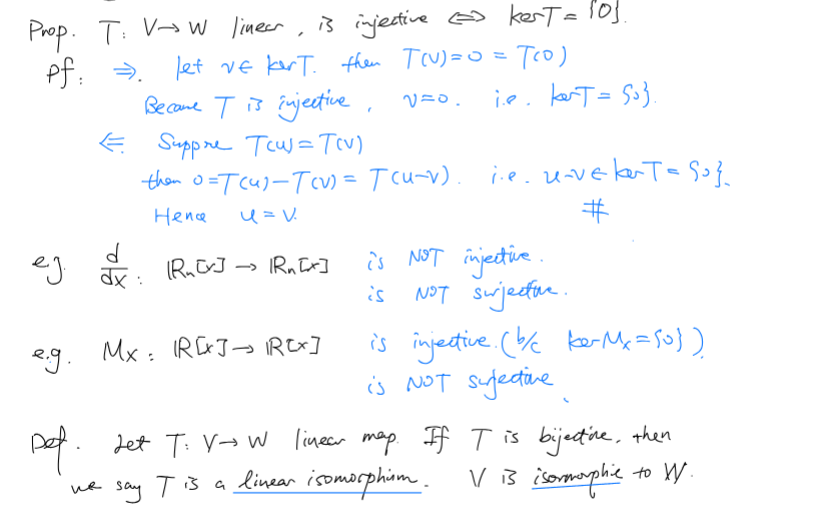 Prop. T: V → W linear, is injective ⇔ ker T = {0}.
pf: ⇒. let v ∈ ker T. then T(v) = 0 = T(0)
Because T is injective, v = 0. i.e. ker T = {0}.
⇐ Suppose T(u) = T(v)
then 0 = T(u) - T(v) = T(u-v). i.e. u-v ∈ ker T = {0}.
Hence u = v. #
e.g. d/dx : ℝₙ[x] → ℝₙ[x] is NOT injective.
is NOT surjective.
e.g. Mx : ℝ[x] → ℝ[x] is injective. (b/c ker Mx = {0})
is NOT surjective.
Def. Let T: V → W linear map. If T is bijective, then
we say T is a linear isomorphism. V is isormorphic to W.